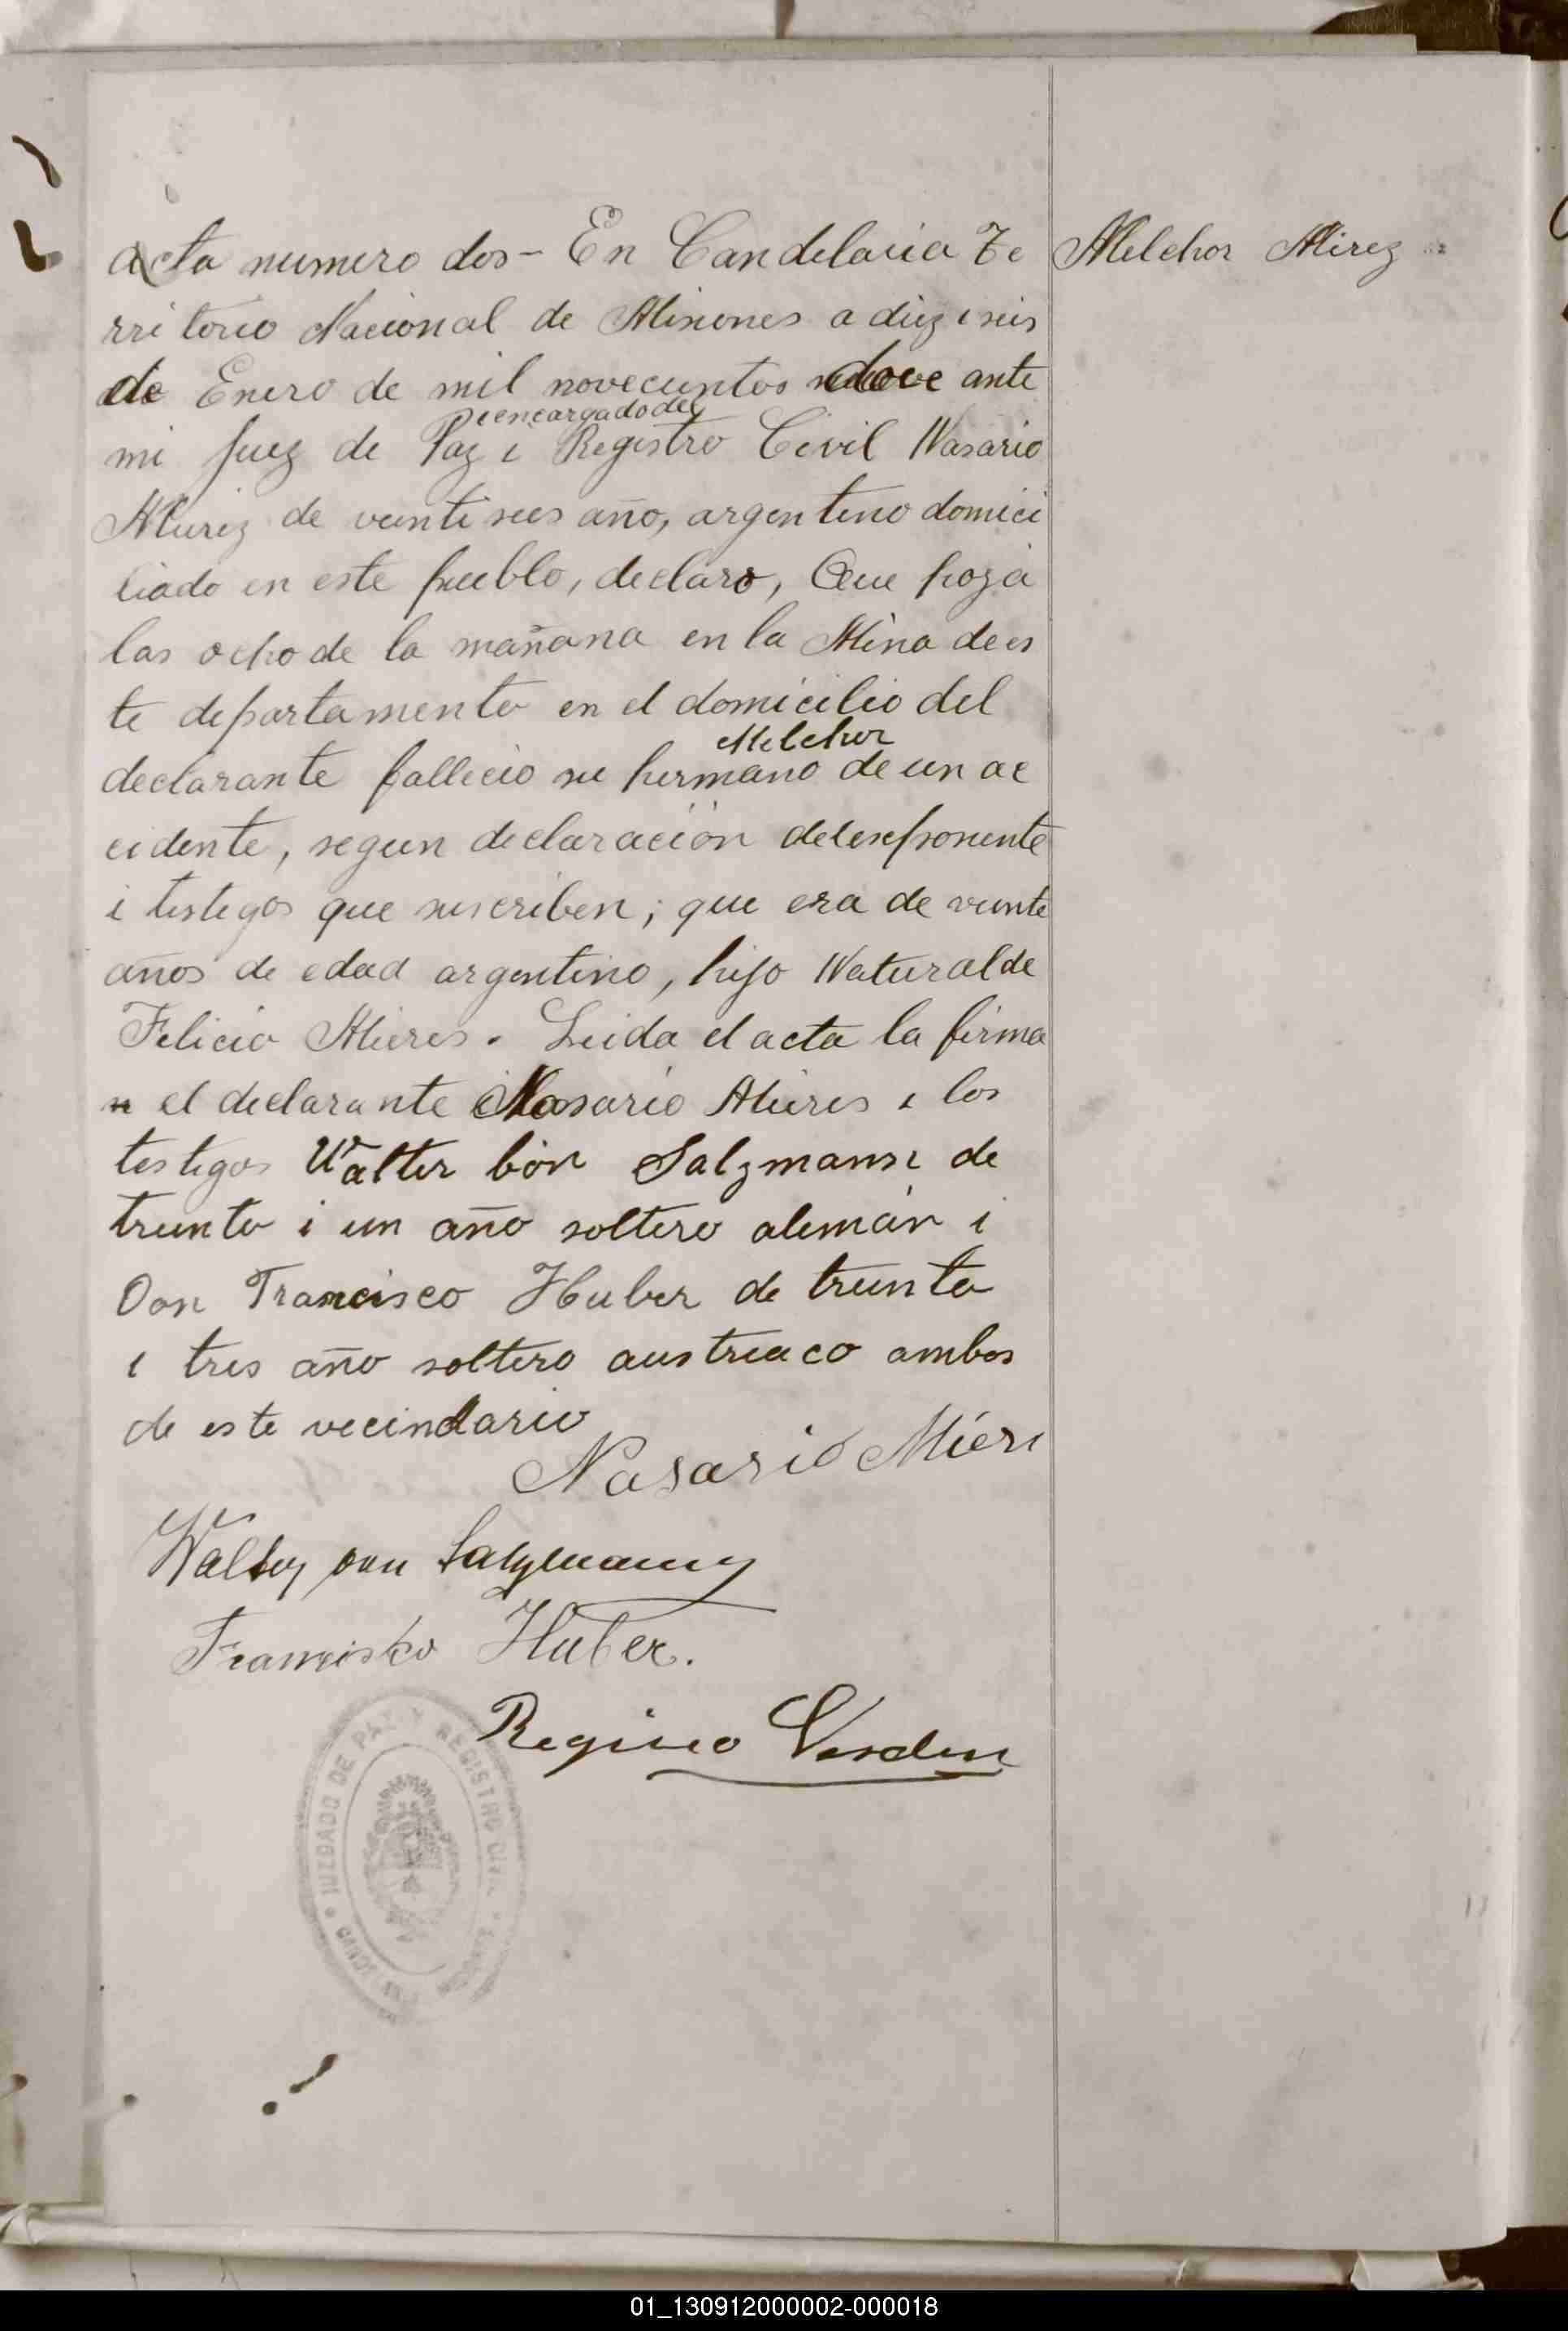 acta numero dos - En Candelaria Te
rritorio Nacional de Misiones a diez i seis
de Enero de mil novecientos doce ante
i encargado del
mi Juez de Paz i Registro Civil Nasario
Mirez de veinti seis año, argentino domici
liado en este pueblo, declaro, Que hoy a
las ocho de la mañana en la Mina de es
te departamento en el domicilio del
Melchor
declarante fallecio su hermano de un ac
cidente, segun declaración del esponente
i testigos que suscriben; que era de veinte
años de edad argentino, hijo Natural de
Felicio Mieres. Leida el acta la firma
n el declarante Nasario Mieres i los
testigos Walter bon Salzmann de
treinta i un año soltero alemán i
Don Francisco Huber de treinta
i tres año soltero austriaco ambos
de este vecindario
Nasario Miere
Walter von Salzmann
Francisko Huber.
Regino
JUZGADO DE PAZ Y REGISTRO CIVIL
Melchor Mirez
01_130912000002-000018